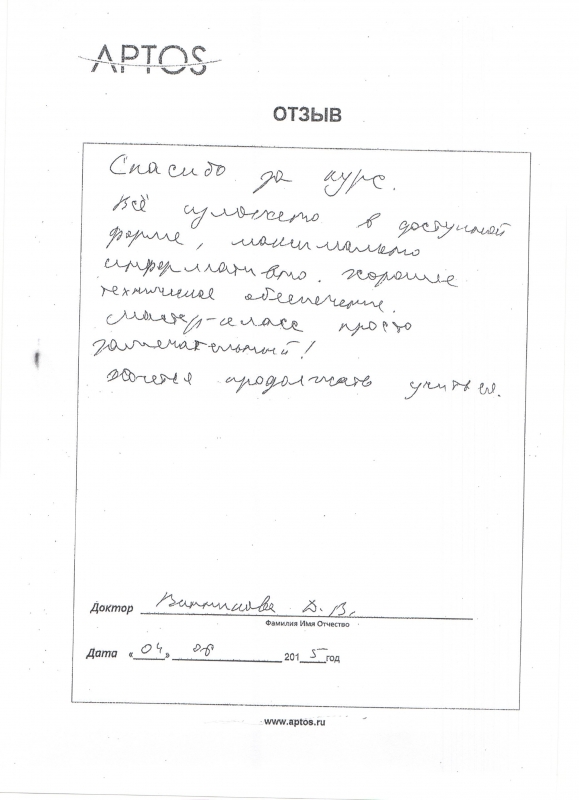 APTOS
ОТЗЫВ
Спасибо за курс.
Всё изложено в доступной
форме, максимально
информативно. Хорошее
техническое обеспечение.
Мастер-класс просто
замечательный!
Хочется продолжать учиться.
Доктор Д. В.
Фамилия Имя Отчество
Дата «04» 06 2015 год
www.aptos.ru